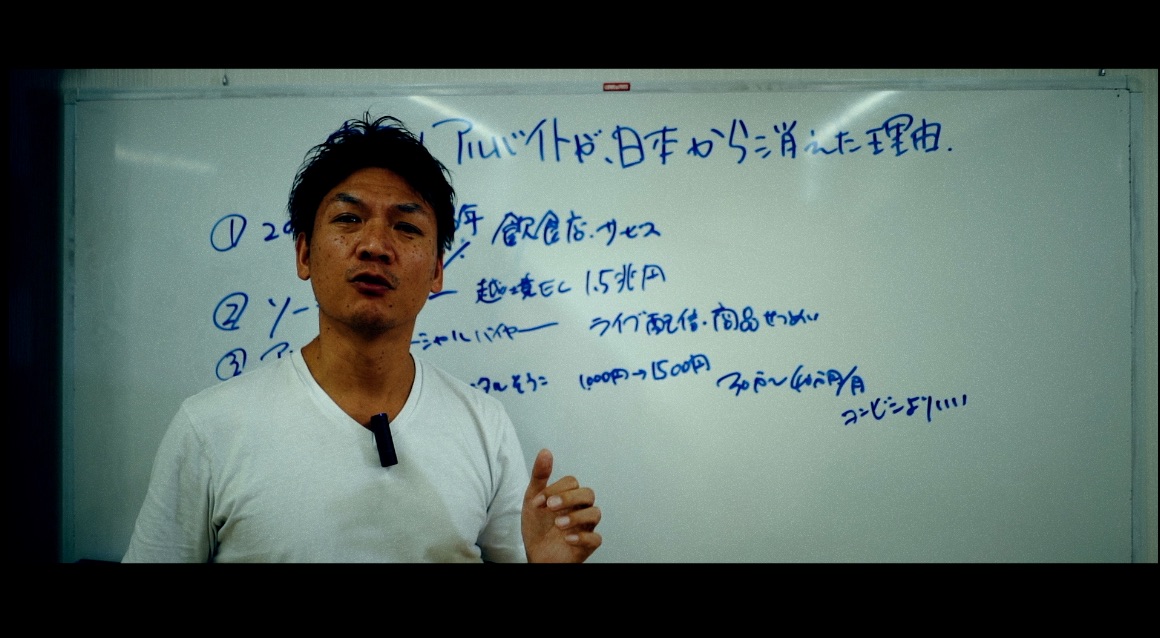 アルバイトが、日本から消えた理由.
① 20 年 飲食店.サービス
② ソー ー 越境EC 1.5兆円
③ ア シャルバイヤー ライブ配信・商品せつめい
タルそうこ 1,000円→1500円 30万〜40万円/月
コンビニよりいい